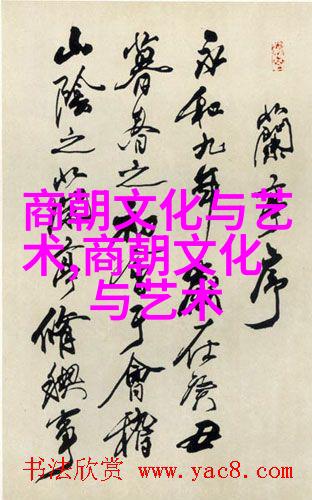 蘭亭序
永和九年歲在癸丑
暮春之初會于會稽
山陰之蘭亭脩禊事
商朝文化与艺
术,商朝文化
与艺术
书法欣赏 www.yac8.com